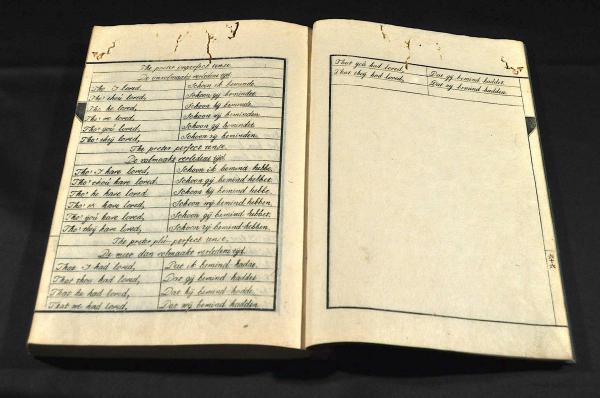 The preter imperfect tense.
De onvolmaakt verleden tijd.
Tho' I loved, Schoon ik beminde.
Tho' thoú loved, Schoon gÿ bemindet.
Tho' he loved, Schoon hÿ beminde.
Tho' we loved, Schoon wÿ beminden.
Tho' yoú loved, Schoon gÿ bemindet.
Tho' theÿ loved, Schoon zÿ beminden.
The preter perfect tense.
De volmaakt verledene tÿd.
Tho' I have loved, Schoon ik bemind hebbe.
Tho' thoú have loved. Schoon gÿ bemind hebbet.
Tho' he have loved Schoon hÿ bemind hebbe.
Tho' we have loved, Schoon wÿ bemind hebben.
Tho' yoú have loved, Schoon gÿ bemind hebbet.
Tho' theÿ have loved, Schoon zÿ bemind hebben.
The preter plú-perfect tense.
De meer dan volmaakt verledene tÿd.
That I had loved, Dat ik bemind hadde.
That thou had loved, Dat gÿ bemind haddet
That he had loved, Dat hÿ bemind hadde.
That we had loved, Dat wÿ bemind hadden.
That yoú had loved, Dat gÿ bemind haddet.
That theÿ had loved, Dat zÿ bemind hadden.